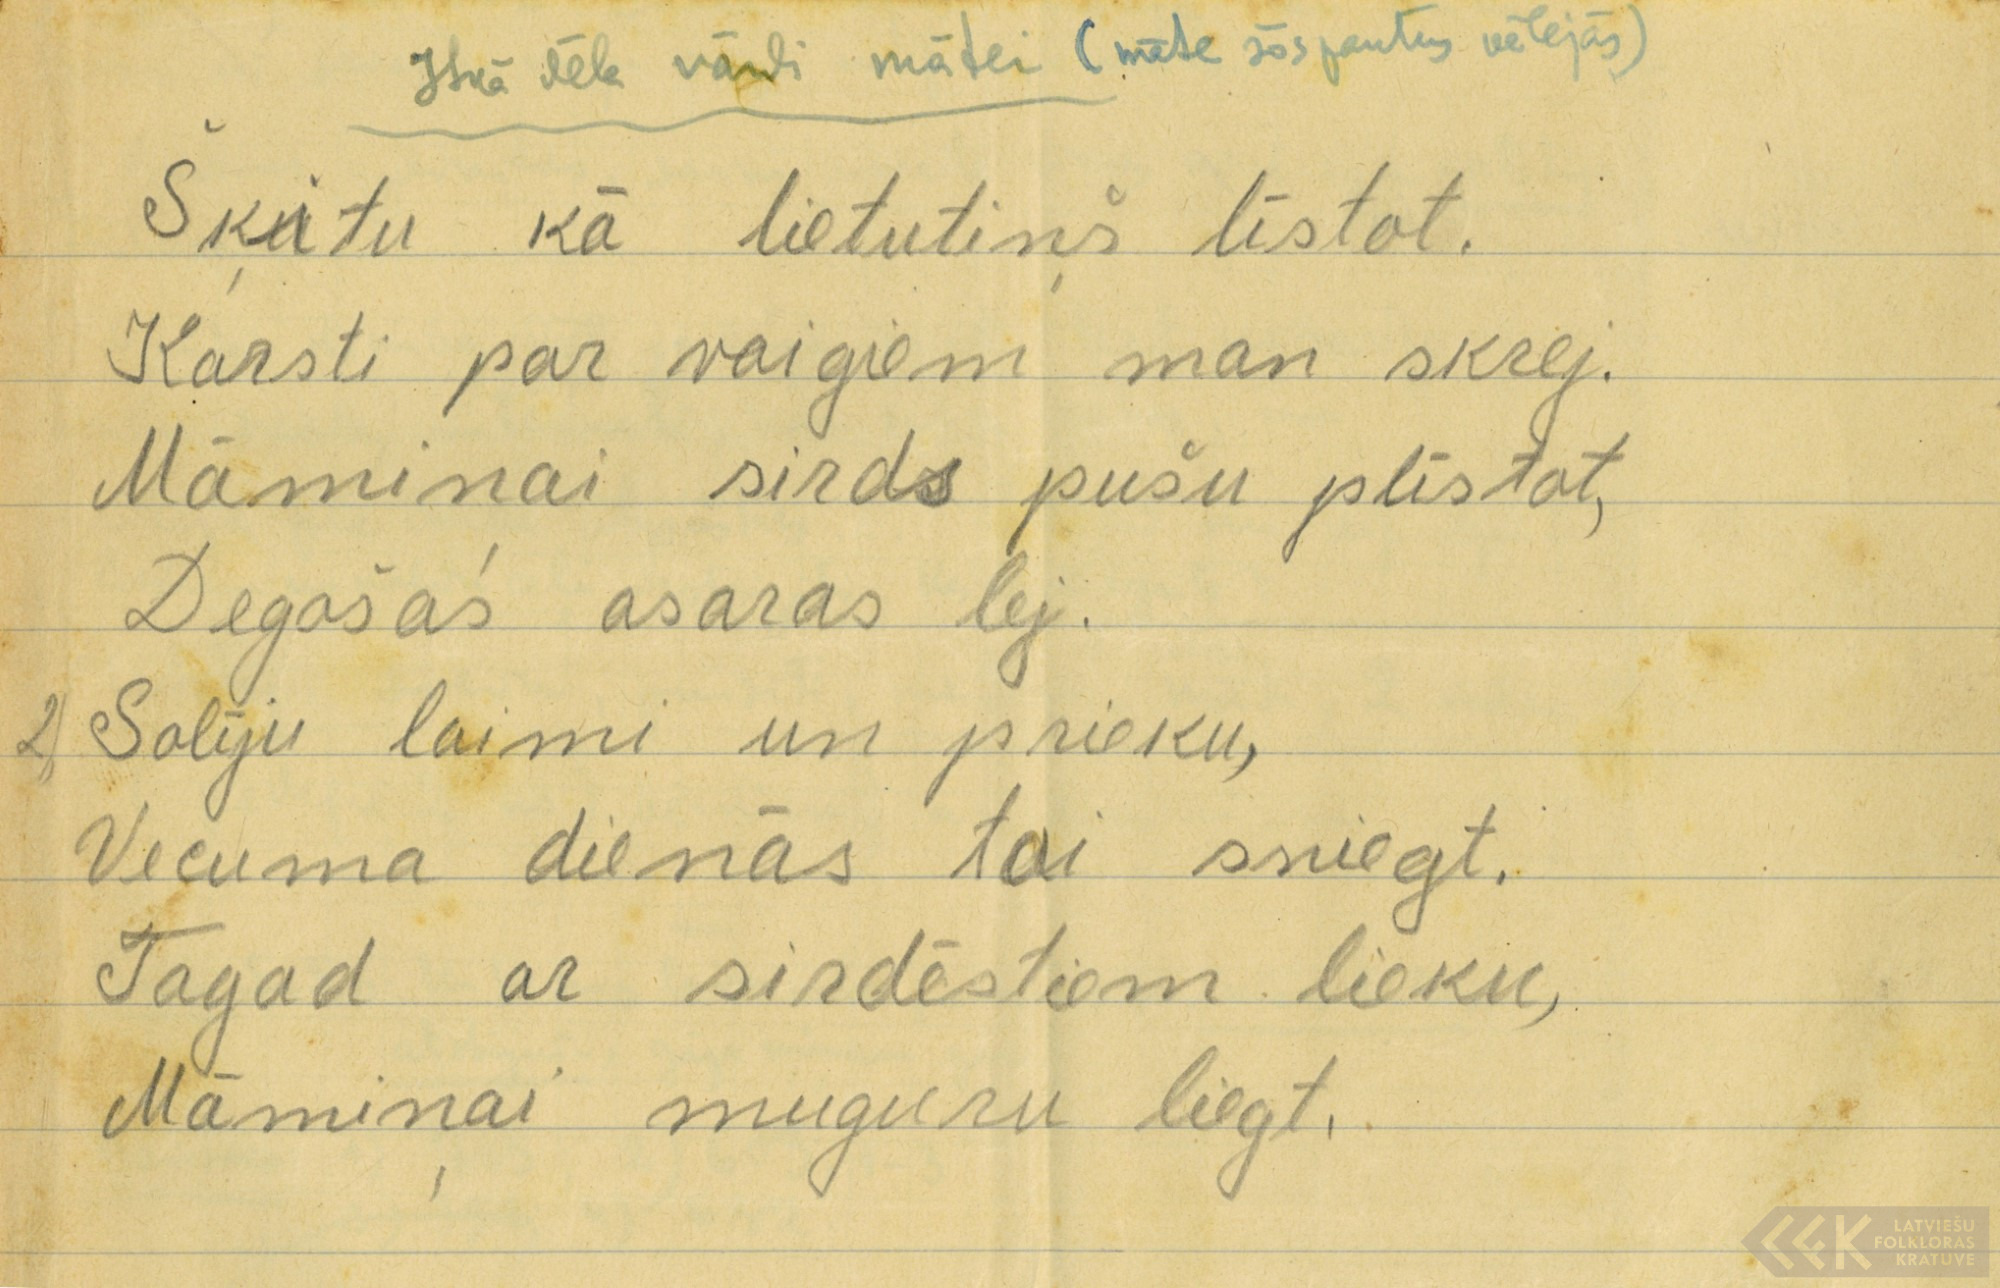 vārdi mātei (māte šos pantus vēlējās)
Šķitu kā lietutiņš līstot.
Karsti par vaigiem man skrej.
Māminai sirds pušu plīstot,
Degošás asaras lej.
2) Solīju laimi un prieku,
Vecuma dienās tai sniegt.
Tagad ar sirdēstiem lieku,
Māmiņai muguru liegt.
LATVIEŠU
FOLKLORAS
KRATUVE